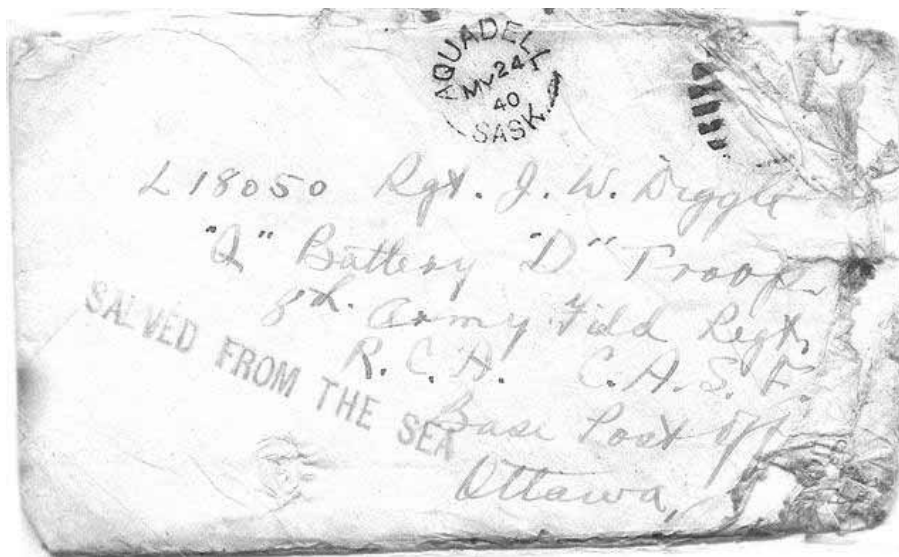 AQUADELL
MY 24
40
SASK.
L 18050 Rgt. J. W. Diggle
"Q" Battery "D" Troop
8th. Army Field Regt.
R. C. A. C. A. S. F.
Base Post Off
Ottawa,
SALVED FROM THE SEA